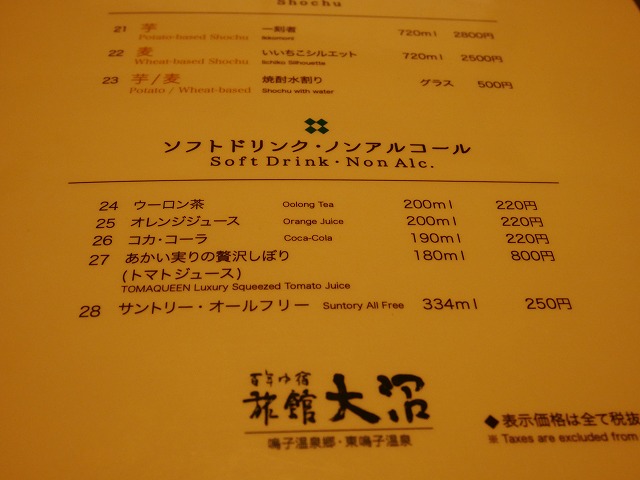 Shochu
21 芋 一刻者 720ml 2800円
Potato-based Shochu Ikkomont
22 麦 いいちこシルエット 720ml 2500円
Wheat-based Shochu Iichiko Silhouette
23 芋/麦 焼酎水割り グラス 500円
Potato / Wheat-based Shochu with water
ソフトドリンク・ノンアルコール
Soft Drink・Non Alc.
24 ウーロン茶 Oolong Tea 200ml 220円
25 オレンジジュース Orange Juice 200ml 220円
26 コカ・コーラ Coca-Cola 190ml 220円
27 あかい実りの贅沢しぼり 180ml 800円
(トマトジュース)
TOMAQUEEN Luxury Squeezed Tomato Juice
28 サントリー・オールフリー Suntory All Free 334ml 250円
百年ゆ宿
旅館 大沼
鳴子温泉郷・東鳴子温泉
◆表示価格は全て税抜
※ Taxes are excluded from